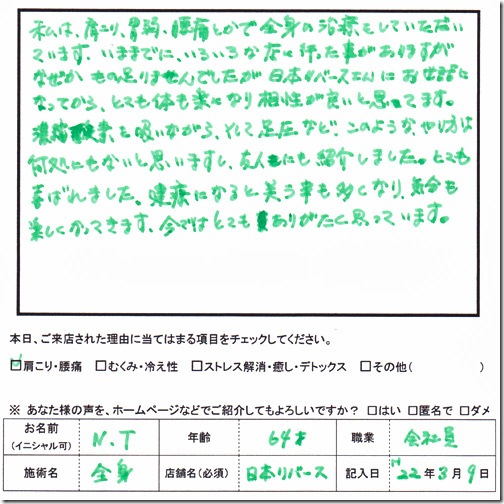 私は、肩こり、胃弱、腰痛とかで全身の治療をしていただい
ています。いままでに、いろいろな店に行った事がありますが
なぜか もの足りませんでしたが 日本リバースさんに お世話に
なってから、とても体も楽になり 相性が良いと思ってます。
濃縮酸素を吸いながら、そして足圧など、このような、やり方は
何処にもないと思いますし、友人にも紹介しました。とても
喜ばれました。健康になると笑う事も多くなり、気分も
楽しくなってきます、今ではとても ありがたく思っています。
本日、ご来店された理由に当てはまる項目をチェックしてください。
☑肩こり・腰痛 □むくみ・冷え性 □ストレス解消・癒し・デトックス □その他( )
※ あなた様の声を、ホームページなどでご紹介してもよろしいですか? □はい □匿名で □ダメ
お名前(イニシャル可) N.T 年齢 64才 職業 会社員
施術名 全身 店舗名(必須) 日本リバース 記入日 H22年3月9日